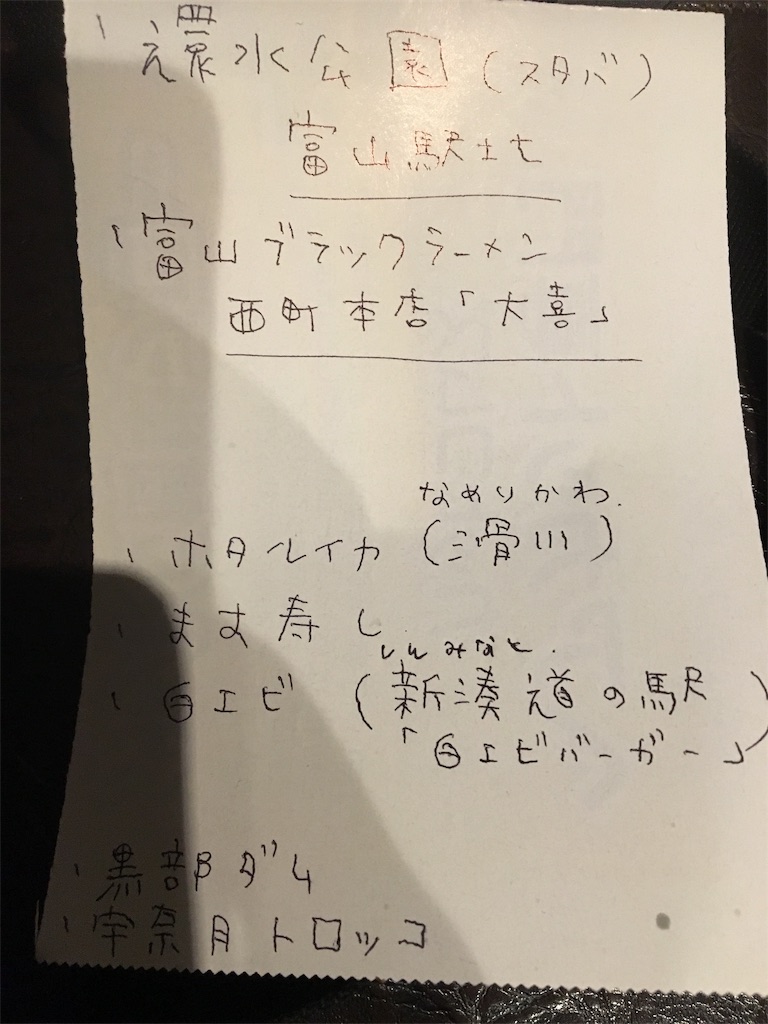 ・還水公園(スタバ)
富山駅北
・富山ブラックラーメン
西町本店「大喜」
なめりかわ.
・ホタルイカ(滑川)
・ます寿し
しんみなと.
・白エビ(新湊道の駅)
「白エビバーガー」
・黒部ダム
・宇奈月トロッコ